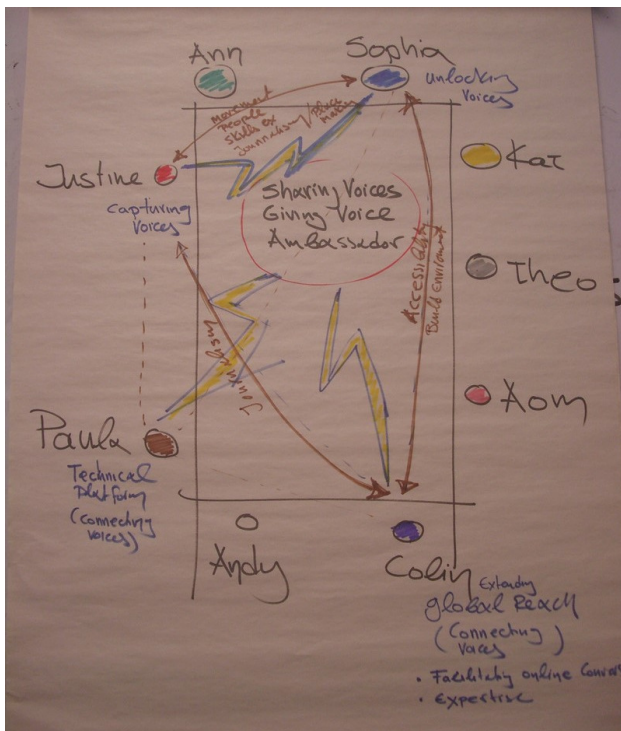 Ann
Sophia
Unlocking
Voices
Movement
People
Skills ex
Journalism / Place
Making
Justine
Capturing
Voices
Sharing Voices
Giving Voice
Ambassador
Kat
Theo
Aom
Accessibility
Build Enviroment
Paula
Technical
Platform
(Connecting
Voices)
Andy
Colin
Extending
global Reach
(Connecting
Voices)
• Facilitating online
• Expertise